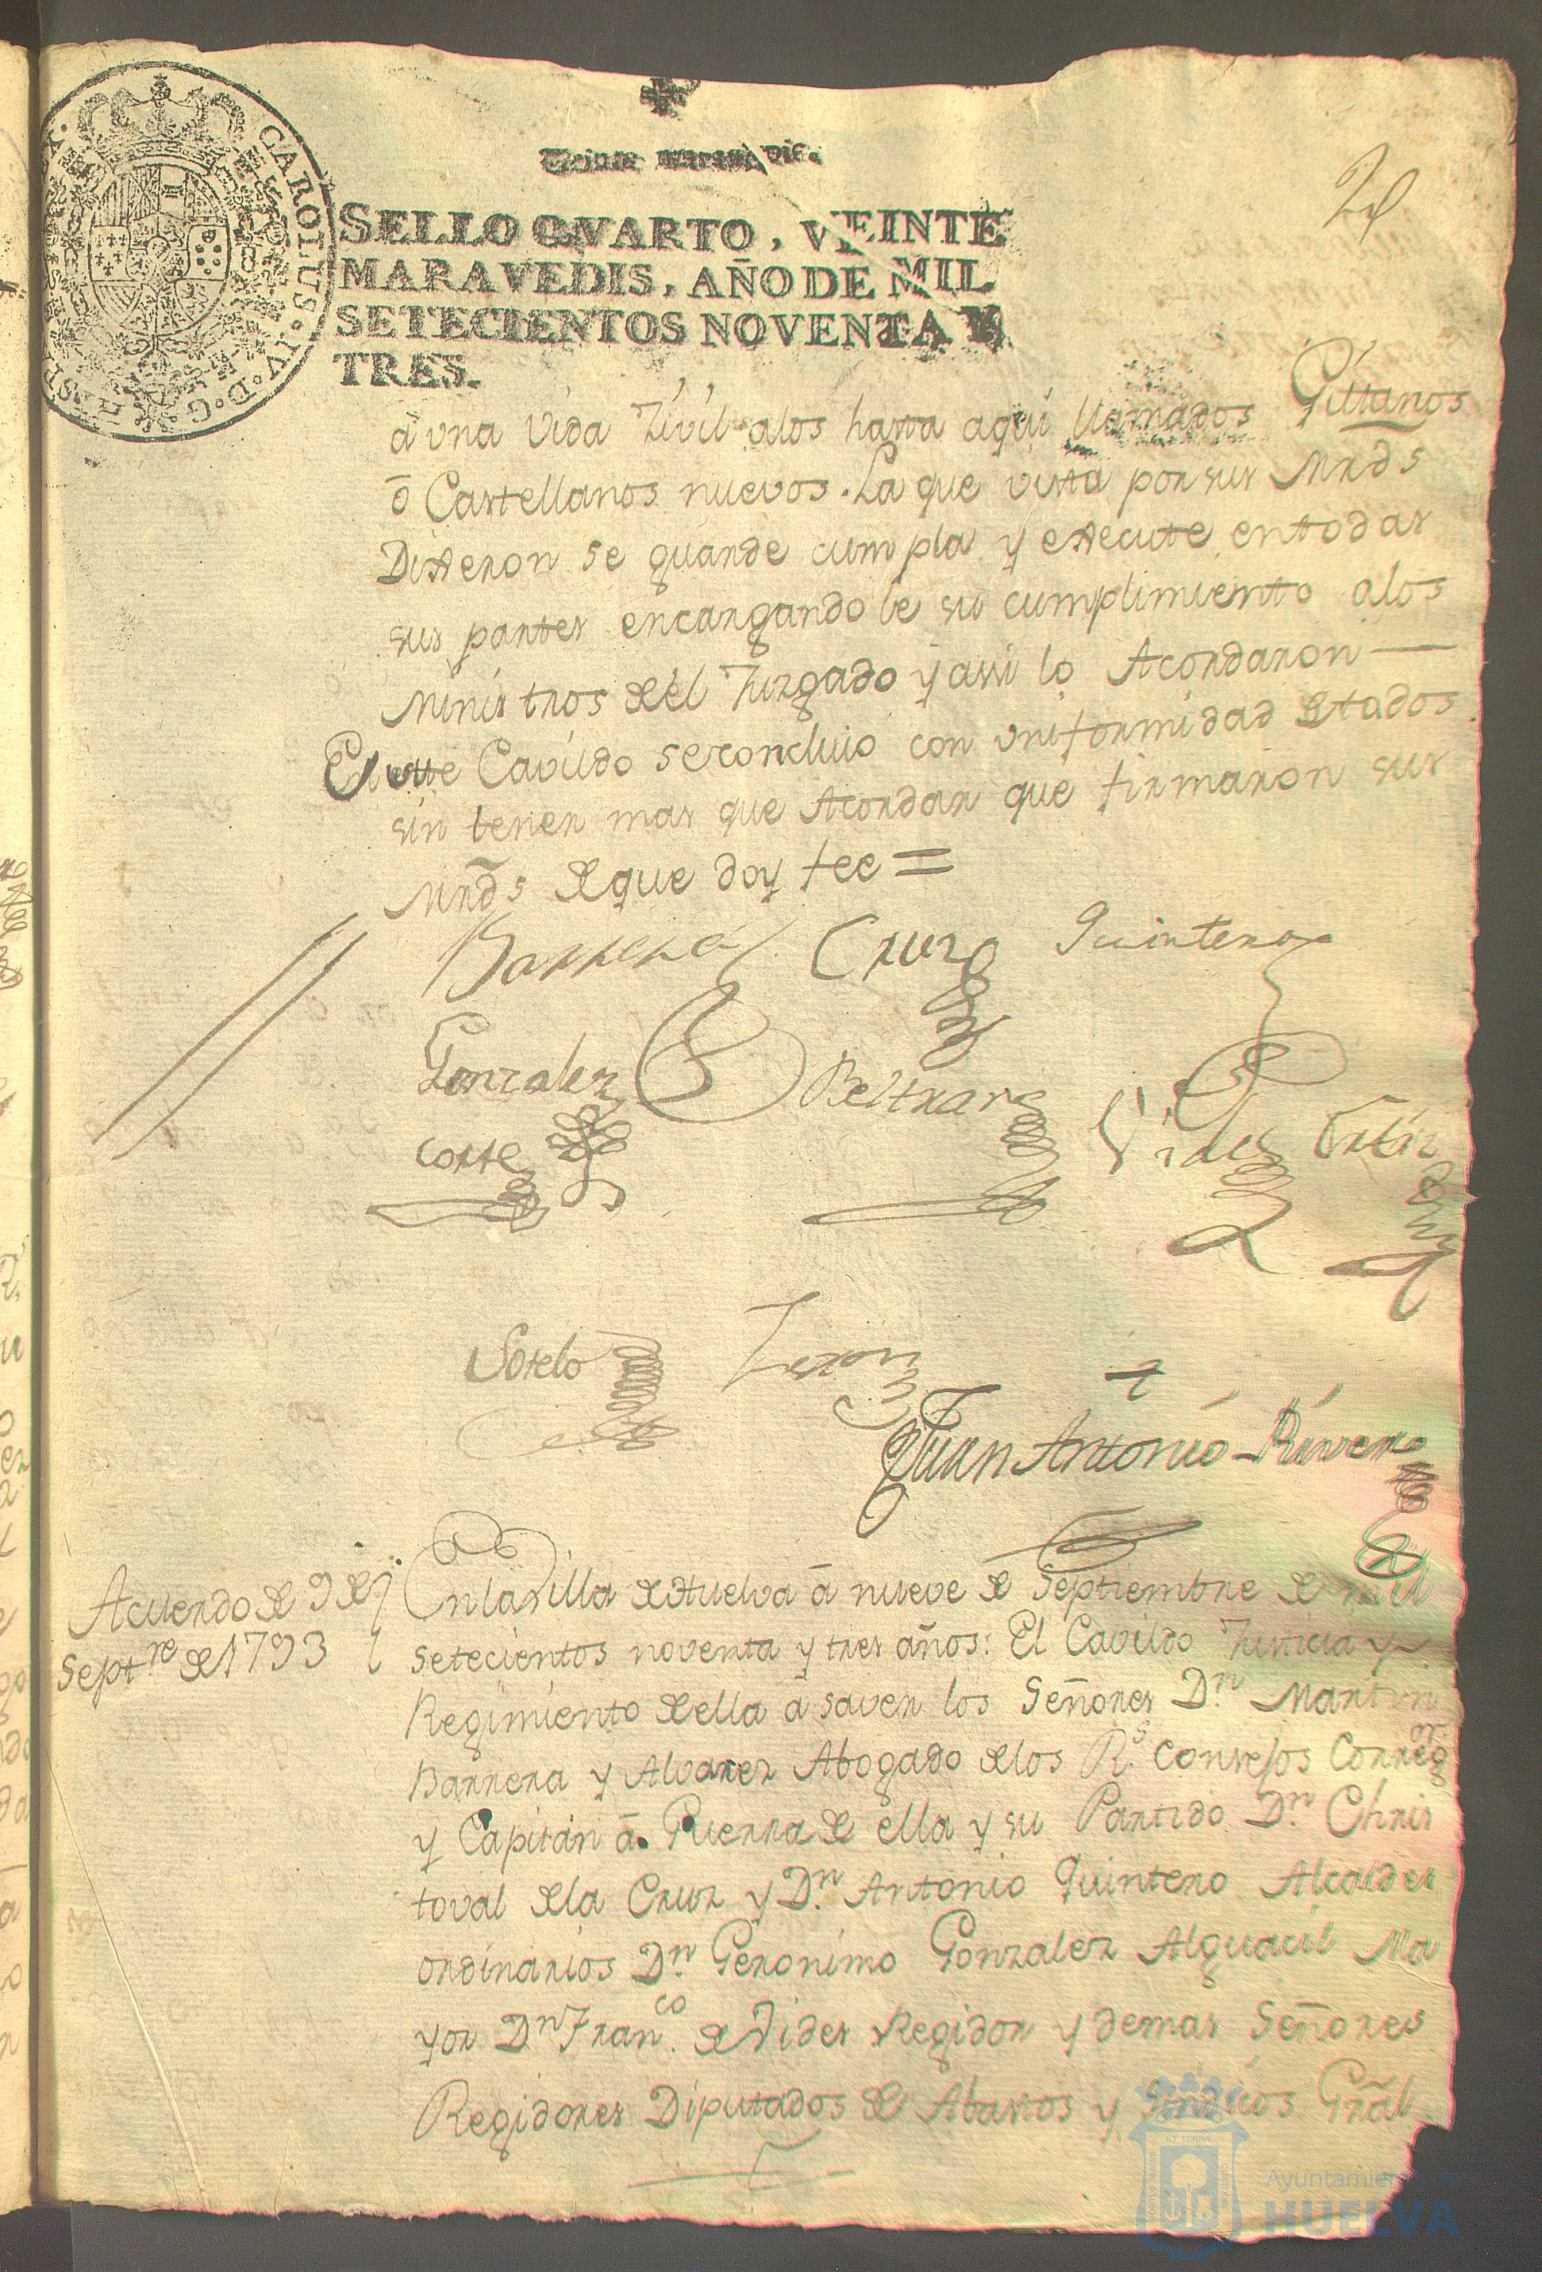 Veinte maravedis.
SELLO QVARTO, VEINTE
MARAVEDIS, AÑO DE MIL
SETECIENTOS NOVENTA Y
TRES.
CAROLUS·IV·D·G·
à vna vida Zivil alos hasta aqui llamados Gittanos
ō Castellanos nuevos. La que vista por sus Mrds
Dixeron se guarde cumpla y execute entodas
sus partes encargandole su cumplimiento alos
Ministros del Juzgado y assi lo Acordaron —
En este Cavildo se concluio con vniformidad de todos
sin tener mas que Acordar que firmaron sus
Mrds de que doy fee =
Barrera Cruz Quintero
Gonzalez Beltran
Corte Vides
Sotelo
Juan Antonio Rivera
Acuerdo de 9 de
Septre de 1793
En la Villa de Huelva à nueve de Septiembre de mil
setecientos noventa y tres años: El Cavildo Justicia y
Regimiento de ella à saver los Señores Dn Martin
Barrera y Alvarez Abogado de los Rs Consejos Corregor
y Capitan à Guerra de ella y su Partido Dn Chris
toval de la Cruz y Dn Antonio Quintero Alcaldes
ordinarios Dn Geronimo Gonzalez Alguacil Ma
yor Dn Franco de Vides Regidor y demas Señores
Regidores Diputados de Abastos y Sindicos Gral
Ayuntamiento de
HUELVA